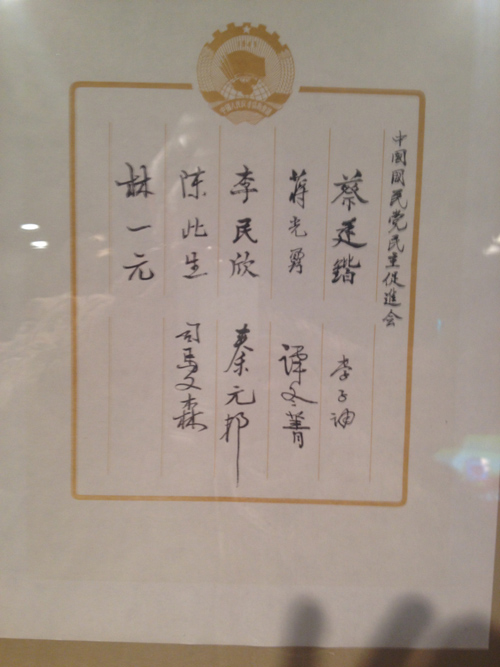 1949
中國國民党民主促進会
蔡廷鍇 李子诵
蒋光鼐 譚冬菁
李民欣 秦元邦
陈此生 司马文森
林一元